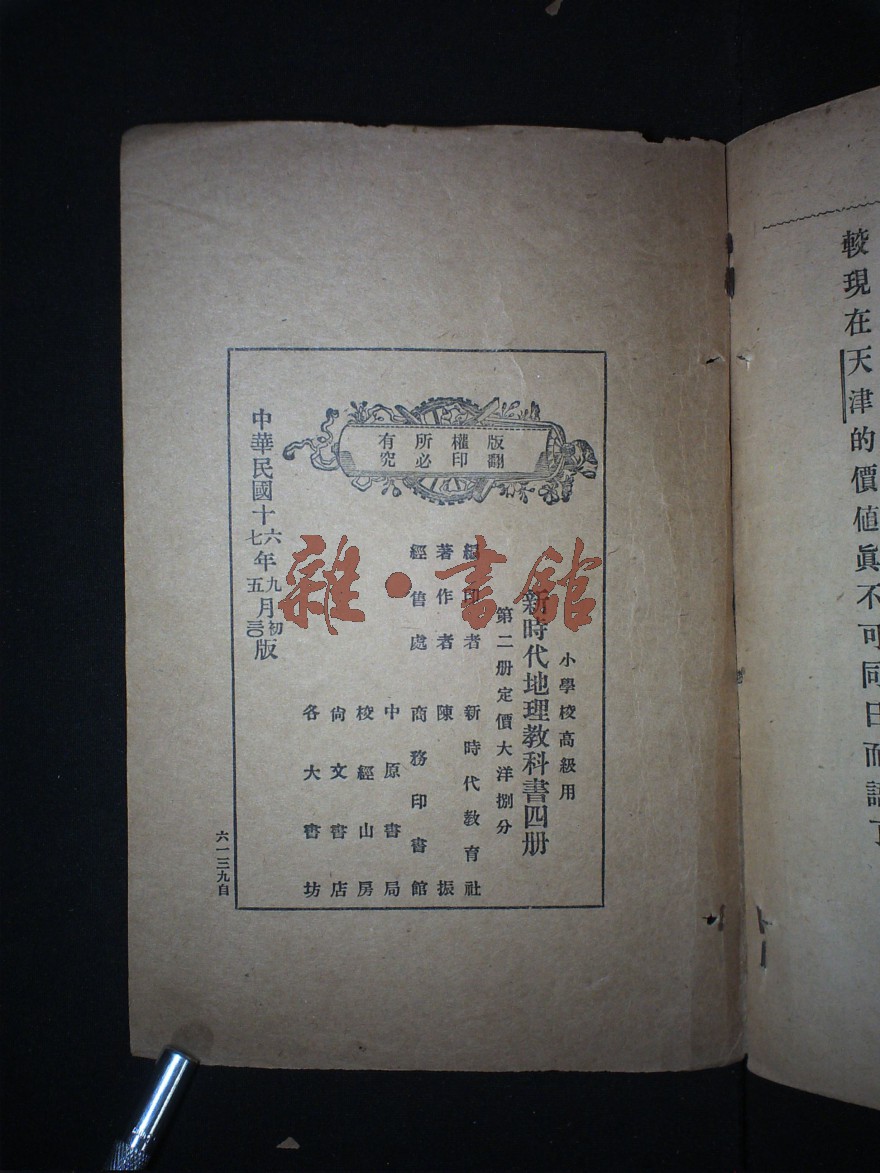 較現在天津的價値眞不可同日而語了
版權所有
翻印必究
小學校高級用
新時代地理教科書四册
第二册定價大洋捌分
編印者 新時代教育社
著作者 陳振
經售處 商務印書館
中原書局
校經山房
尙文書店
各大書坊
中華民國十六年九月初版
七五三〇
六一三九自
雜·書館